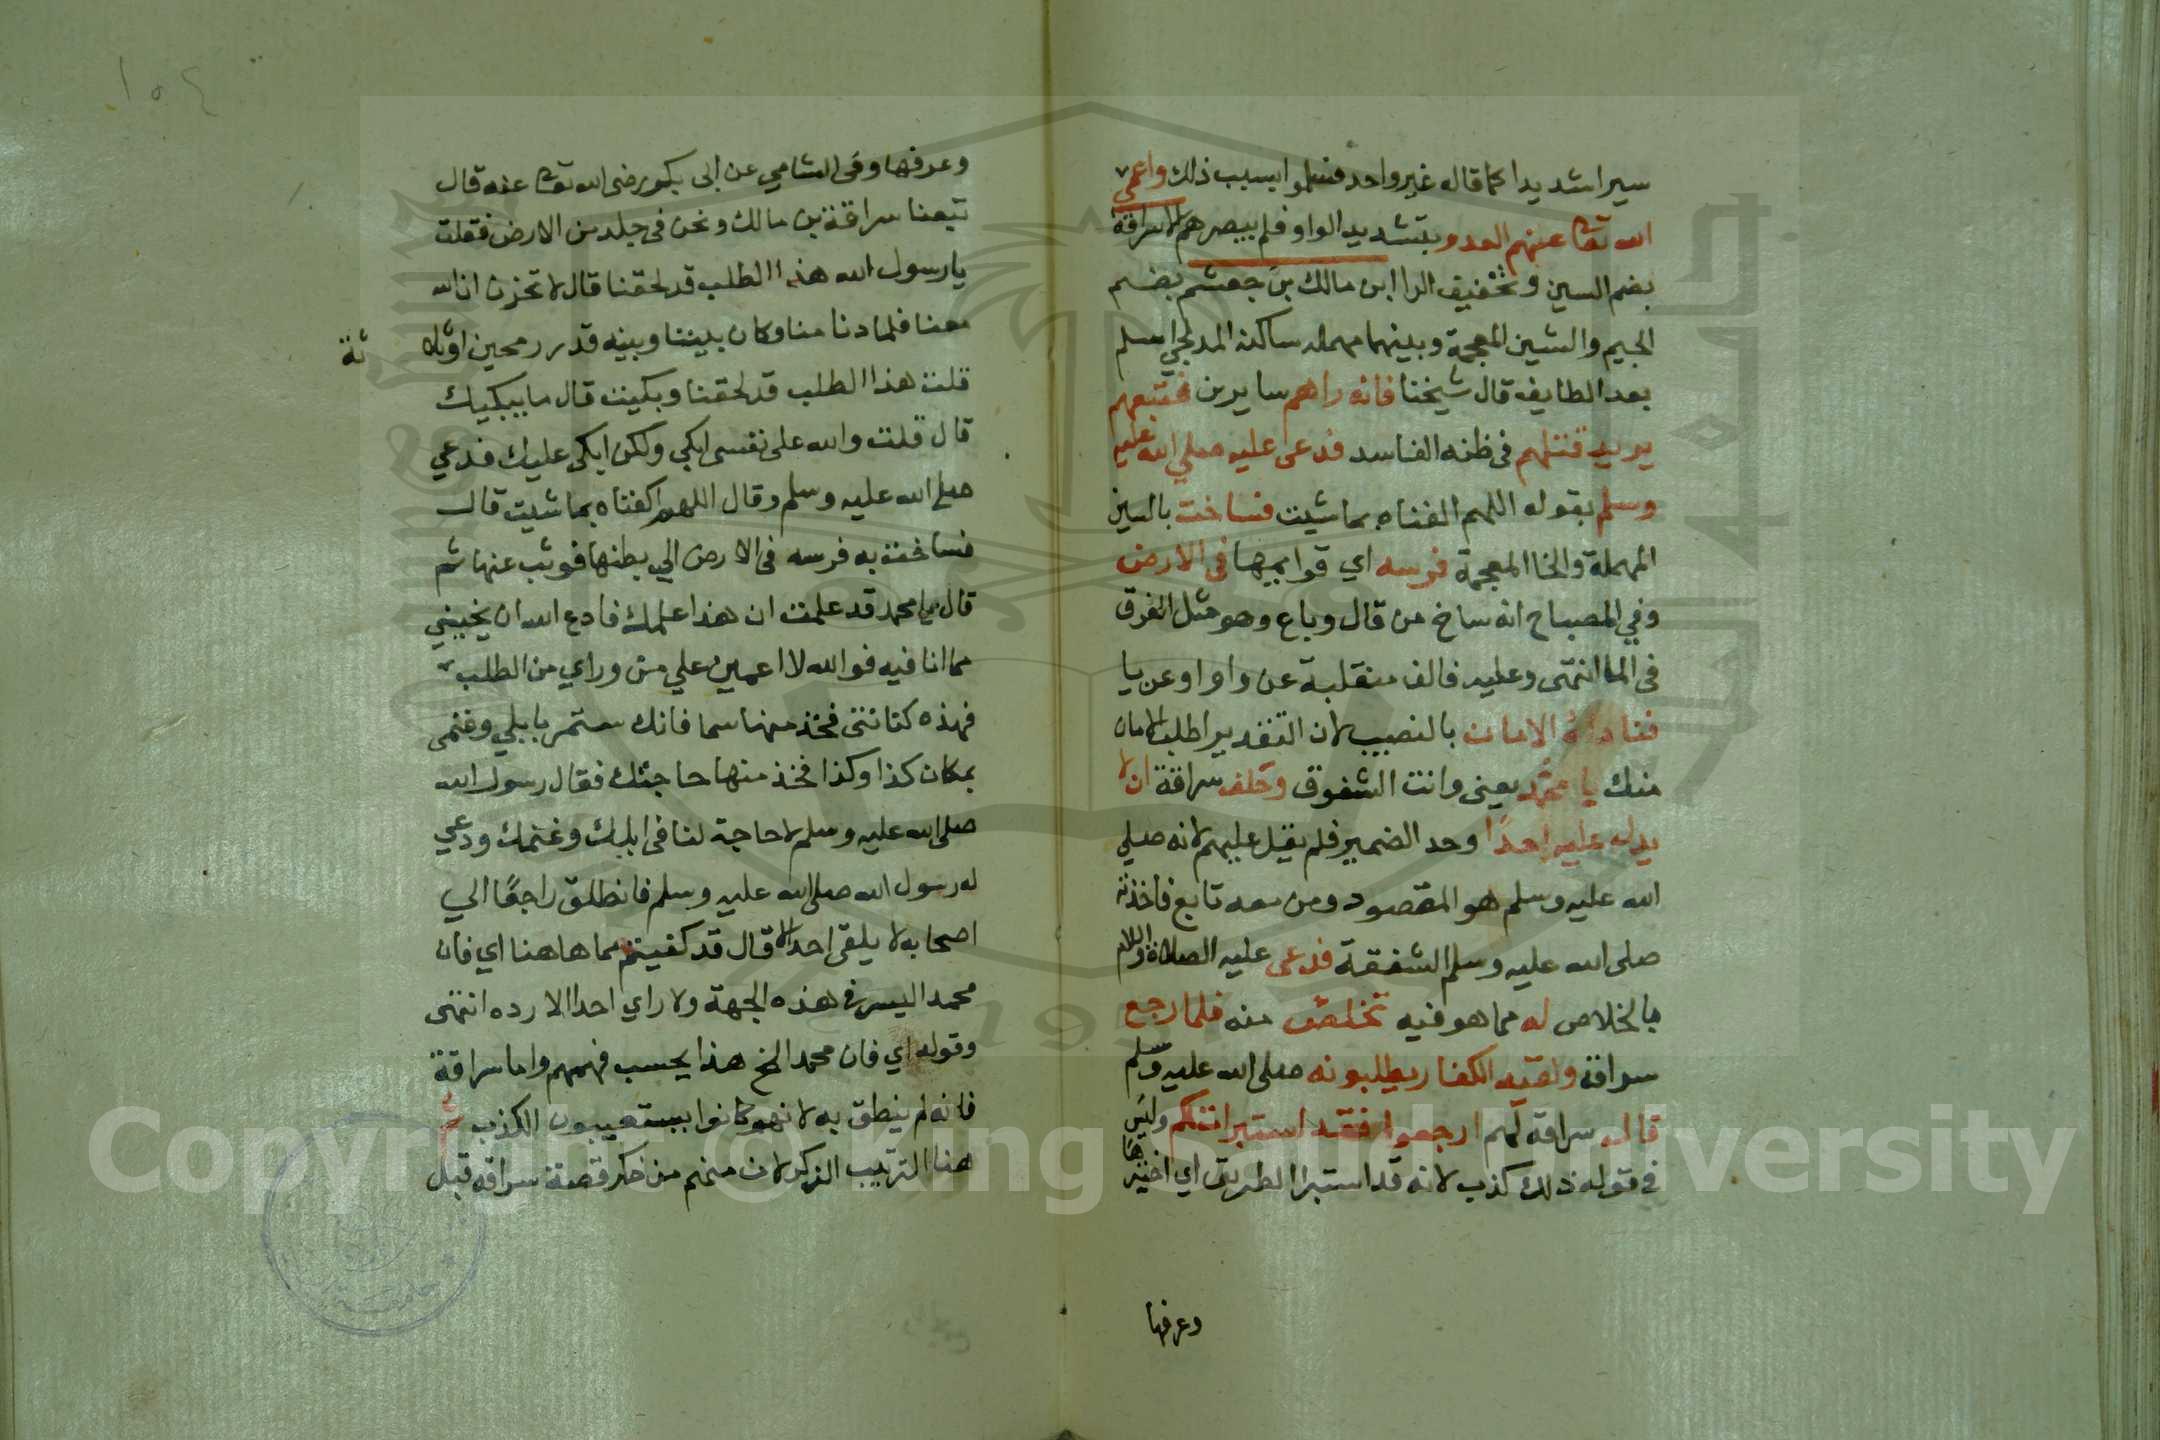 سيرا شديدا كما قاله غير واحد فسلموا بسبب ذلك واعمى
الله تعا عنهم العدو بتشديد الواو فلم يبصرهم الا سراقة
بضم السين وتخفيف الرا ابن مالك بن جعشم بضم
الجيم والشين المعجمة وبينهما مهملة ساكنة المدلجي اسلم
بعد الطايف قال شيخنا فانه راهم سايرين فتتبعهم
يريد قتلهم في ظنه الفاسد فدعى عليه صلي الله عليه
وسلم بقوله اللهم اكفناه بما شيت فساخت بالسين
المهملة والخا المعجمة فرسه اي قوايمها في الارض
وفي المصباح انه ساخ من قال وباع وهو مثل الغرق
في الما انتهى وعليه فالف منقلبة عن واو او عن يا
فناداه الامان بالنصب لان التقدير اطلب الامان
منك يا محمد يعني وانت الشفوق وحلف سراقة ان لا
يدل عليه احدًا وحد الضمير فلم يقل عليهم لانه صلي
الله عليه وسلم هو المقصود ومن معه تابع فاخذته
صلى الله عليه وسلم الشفقة فدعى عليه الصلاة والسلام
بالخلاص له مما هو فيه تخلص منه فلما رجع
سراقة ولقيه الكفار يطلبونه صلى الله عليه وسلم
قال سراقة لهم ارجعوا فقد استبرات لكم وليس
في قوله ذلك كذب لانه قد استبرا الطريق اي اختبرها
وعرفها
وعرفها وفى الشامي عن ابى بكر رضى الله تعا عنه قال
تبعنا سراقة بن مالك ونحن في جلد من الارض فقلت
يا رسول الله هذا الطلب قد لحقنا قال لا تحزن ان الله
معنا فلما دنا منا وكان بيننا وبينه قدر رمحين او ثلاثة
قلت هذا الطلب قد لحقنا وبكيت قال ما يبكيك
قال قلت والله على نفسى ابكي ولكن ابكى عليك فدعي
صلى الله عليه وسلم وقال اللهم اكفناه بما شيت قال
فساخت به فرسه فى الارض الي بطنها فوثب عنها ثم
قال يا محمد قد علمت ان هذا عملك فادع الله ان يخيبني
مما انا فيه فوالله لا اعمين علي من وراي من الطلب
فهذه كنانتى فخذ منها سهما فانك ستمر بابلي وغنمى
بمكان كذا وكذا فخذ منها حاجتك فقال رسول الله
صلى الله عليه وسلم لا حاجة لنا فى ابلك وغنمك ودعي
له رسول الله صلى الله عليه وسلم فانطلق راجعًا الي
اصحابه لا يلقى احدا الا قال قد كفيتم مما هاهنا اي فان
محمد اليس في هذه الجهة ولا راي احدا الا رده انتهى
وقوله اي فان محمد الخ هذا بحسب فهمهم واما سراقة
فانه لم ينطق به لانهم كانوا يستعيبون الكذب ثم
هنا الترتيب الذكر لان منهم من ذكر قصة سراقه قبل
١٥٤
Copyright © King Saud University